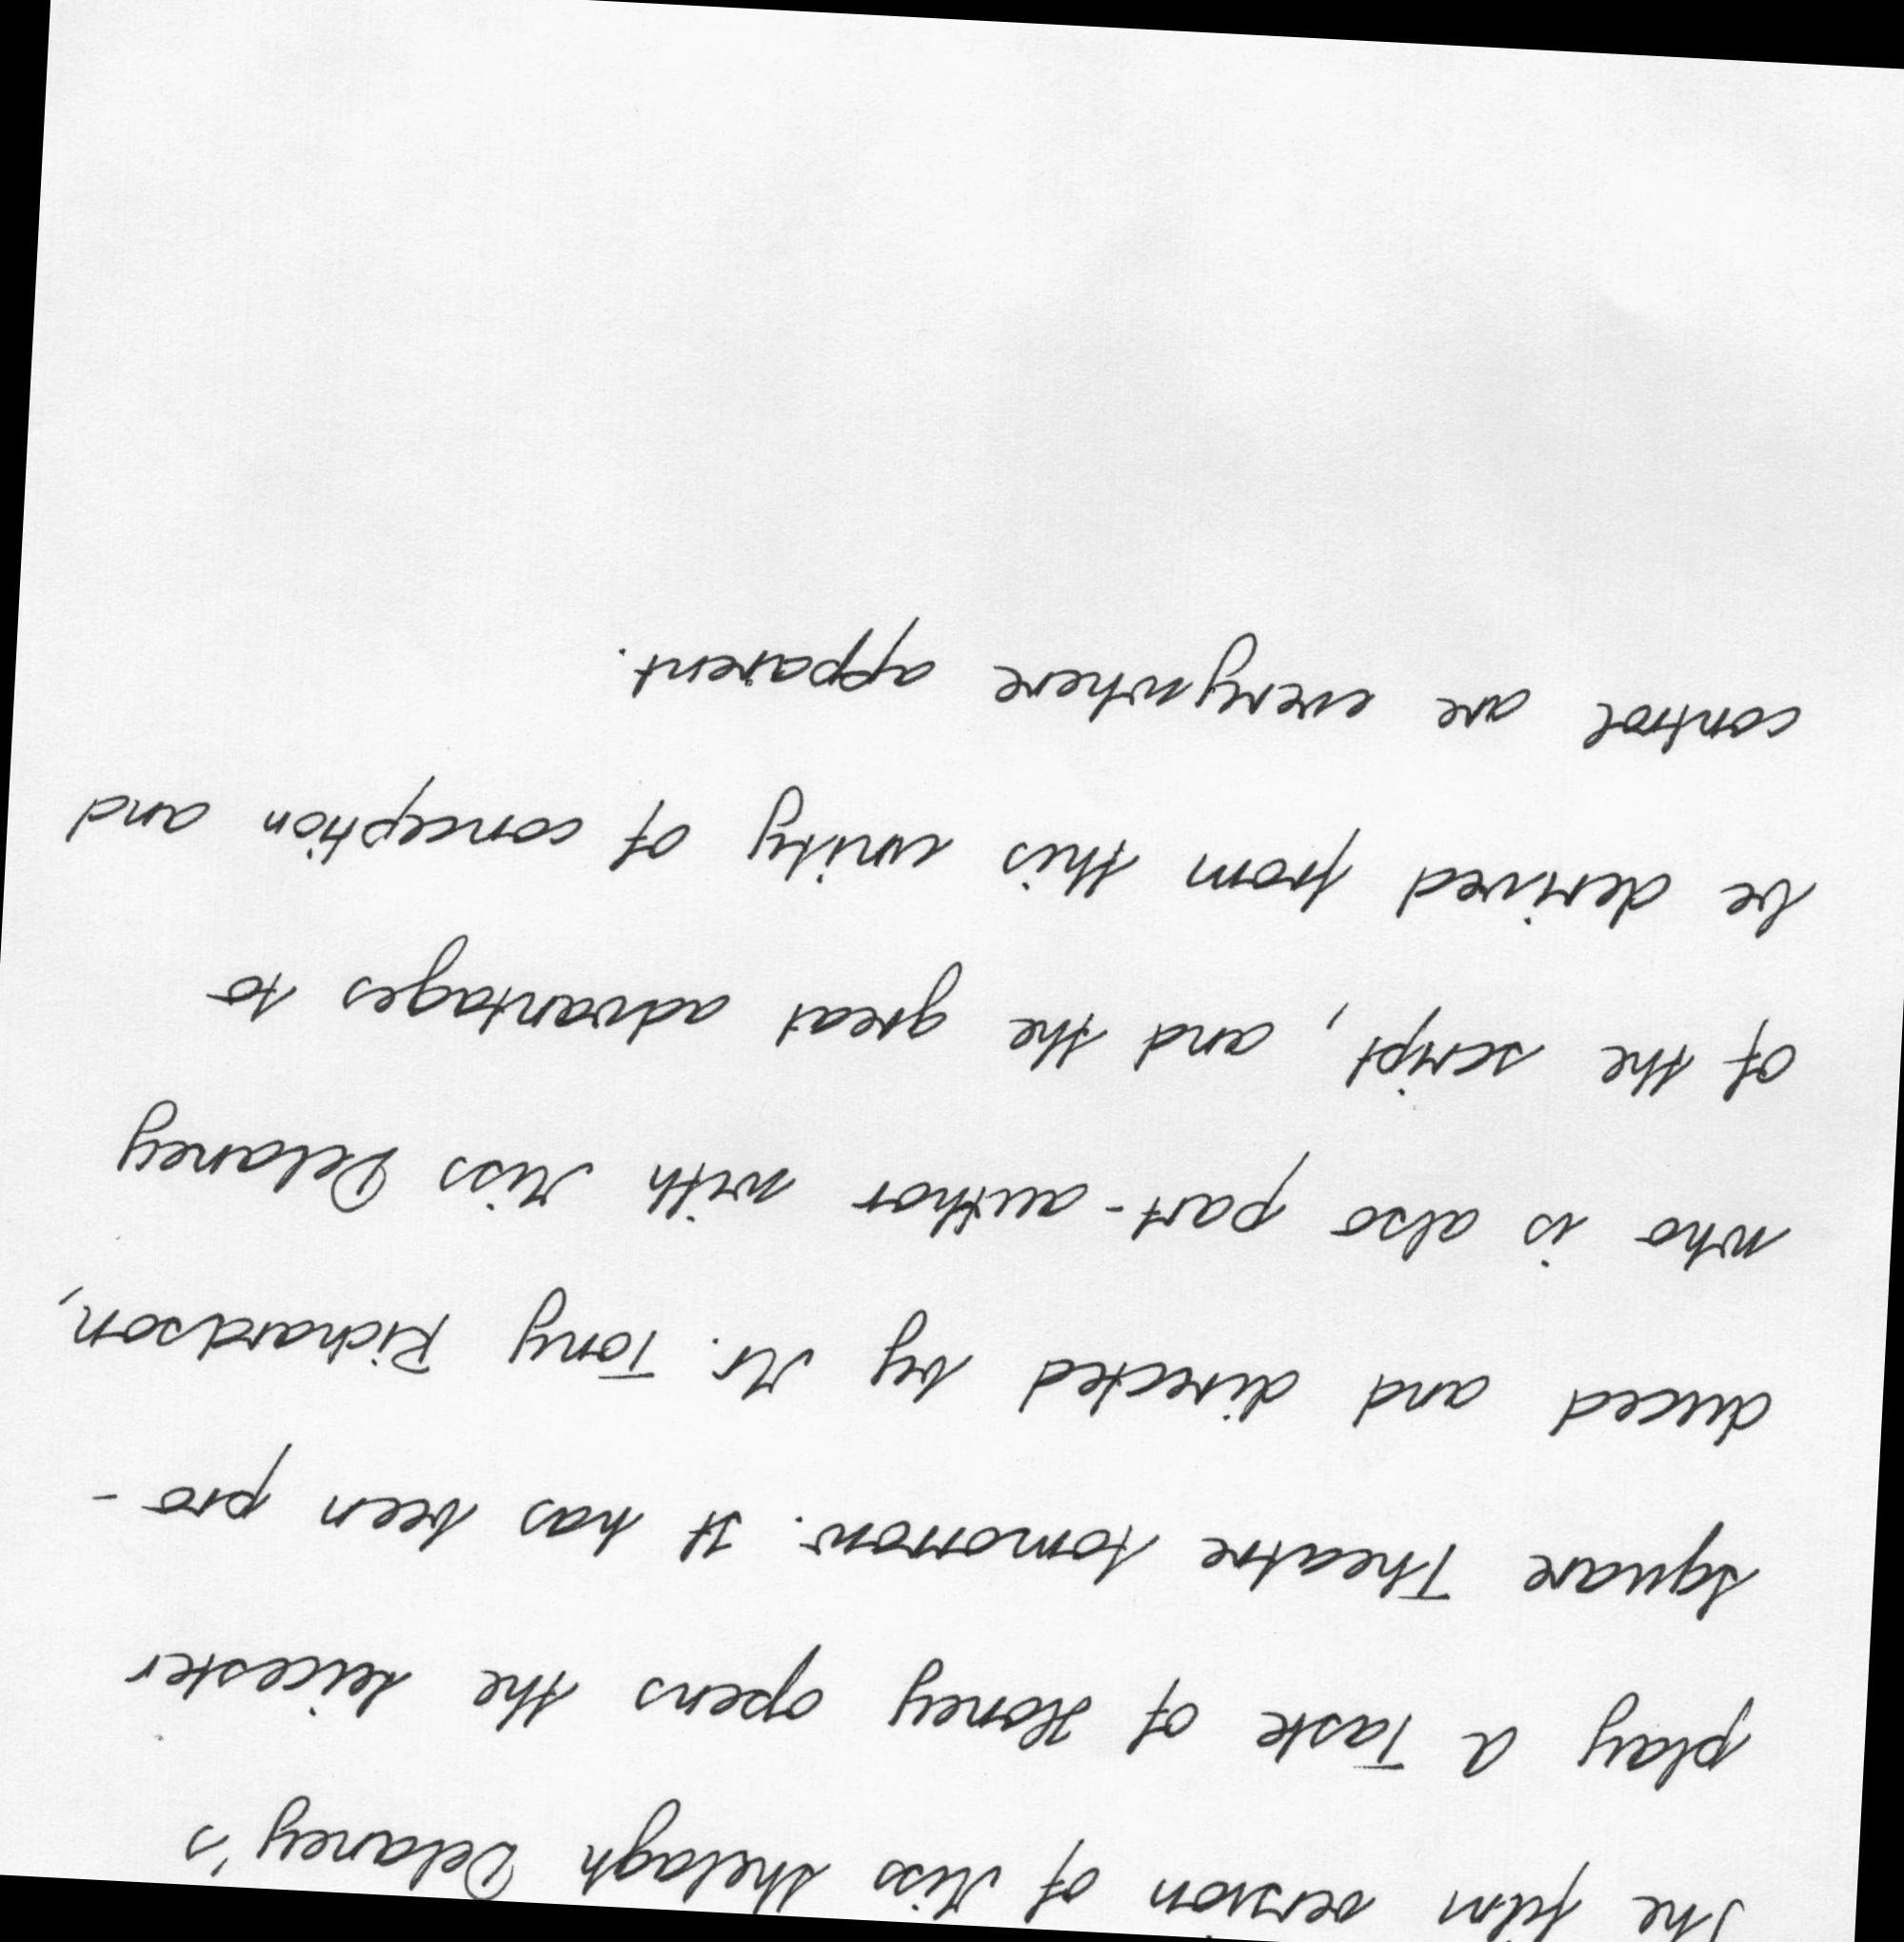 The film version of Miss Shelagh Delaney's
play A Taste of Honey opens the Leicester
Square Theatre tomorrow. It has been pro-
duced and directed by Mr. Tony Richardson,
who is also part-author with Miss Delaney
of the script, and the great advantages to
be derived from this unity of conception and
control are everywhere apparent.